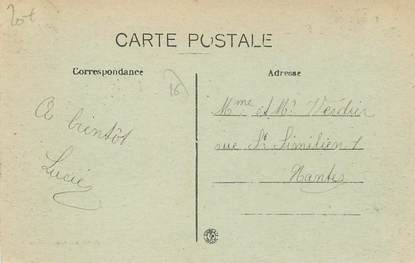 20t
CARTE POSTALE
Correspondance
Adresse
16
A bientôt
Lucie
Mme et Mr Verdier
rue St Similien 1
Nantes